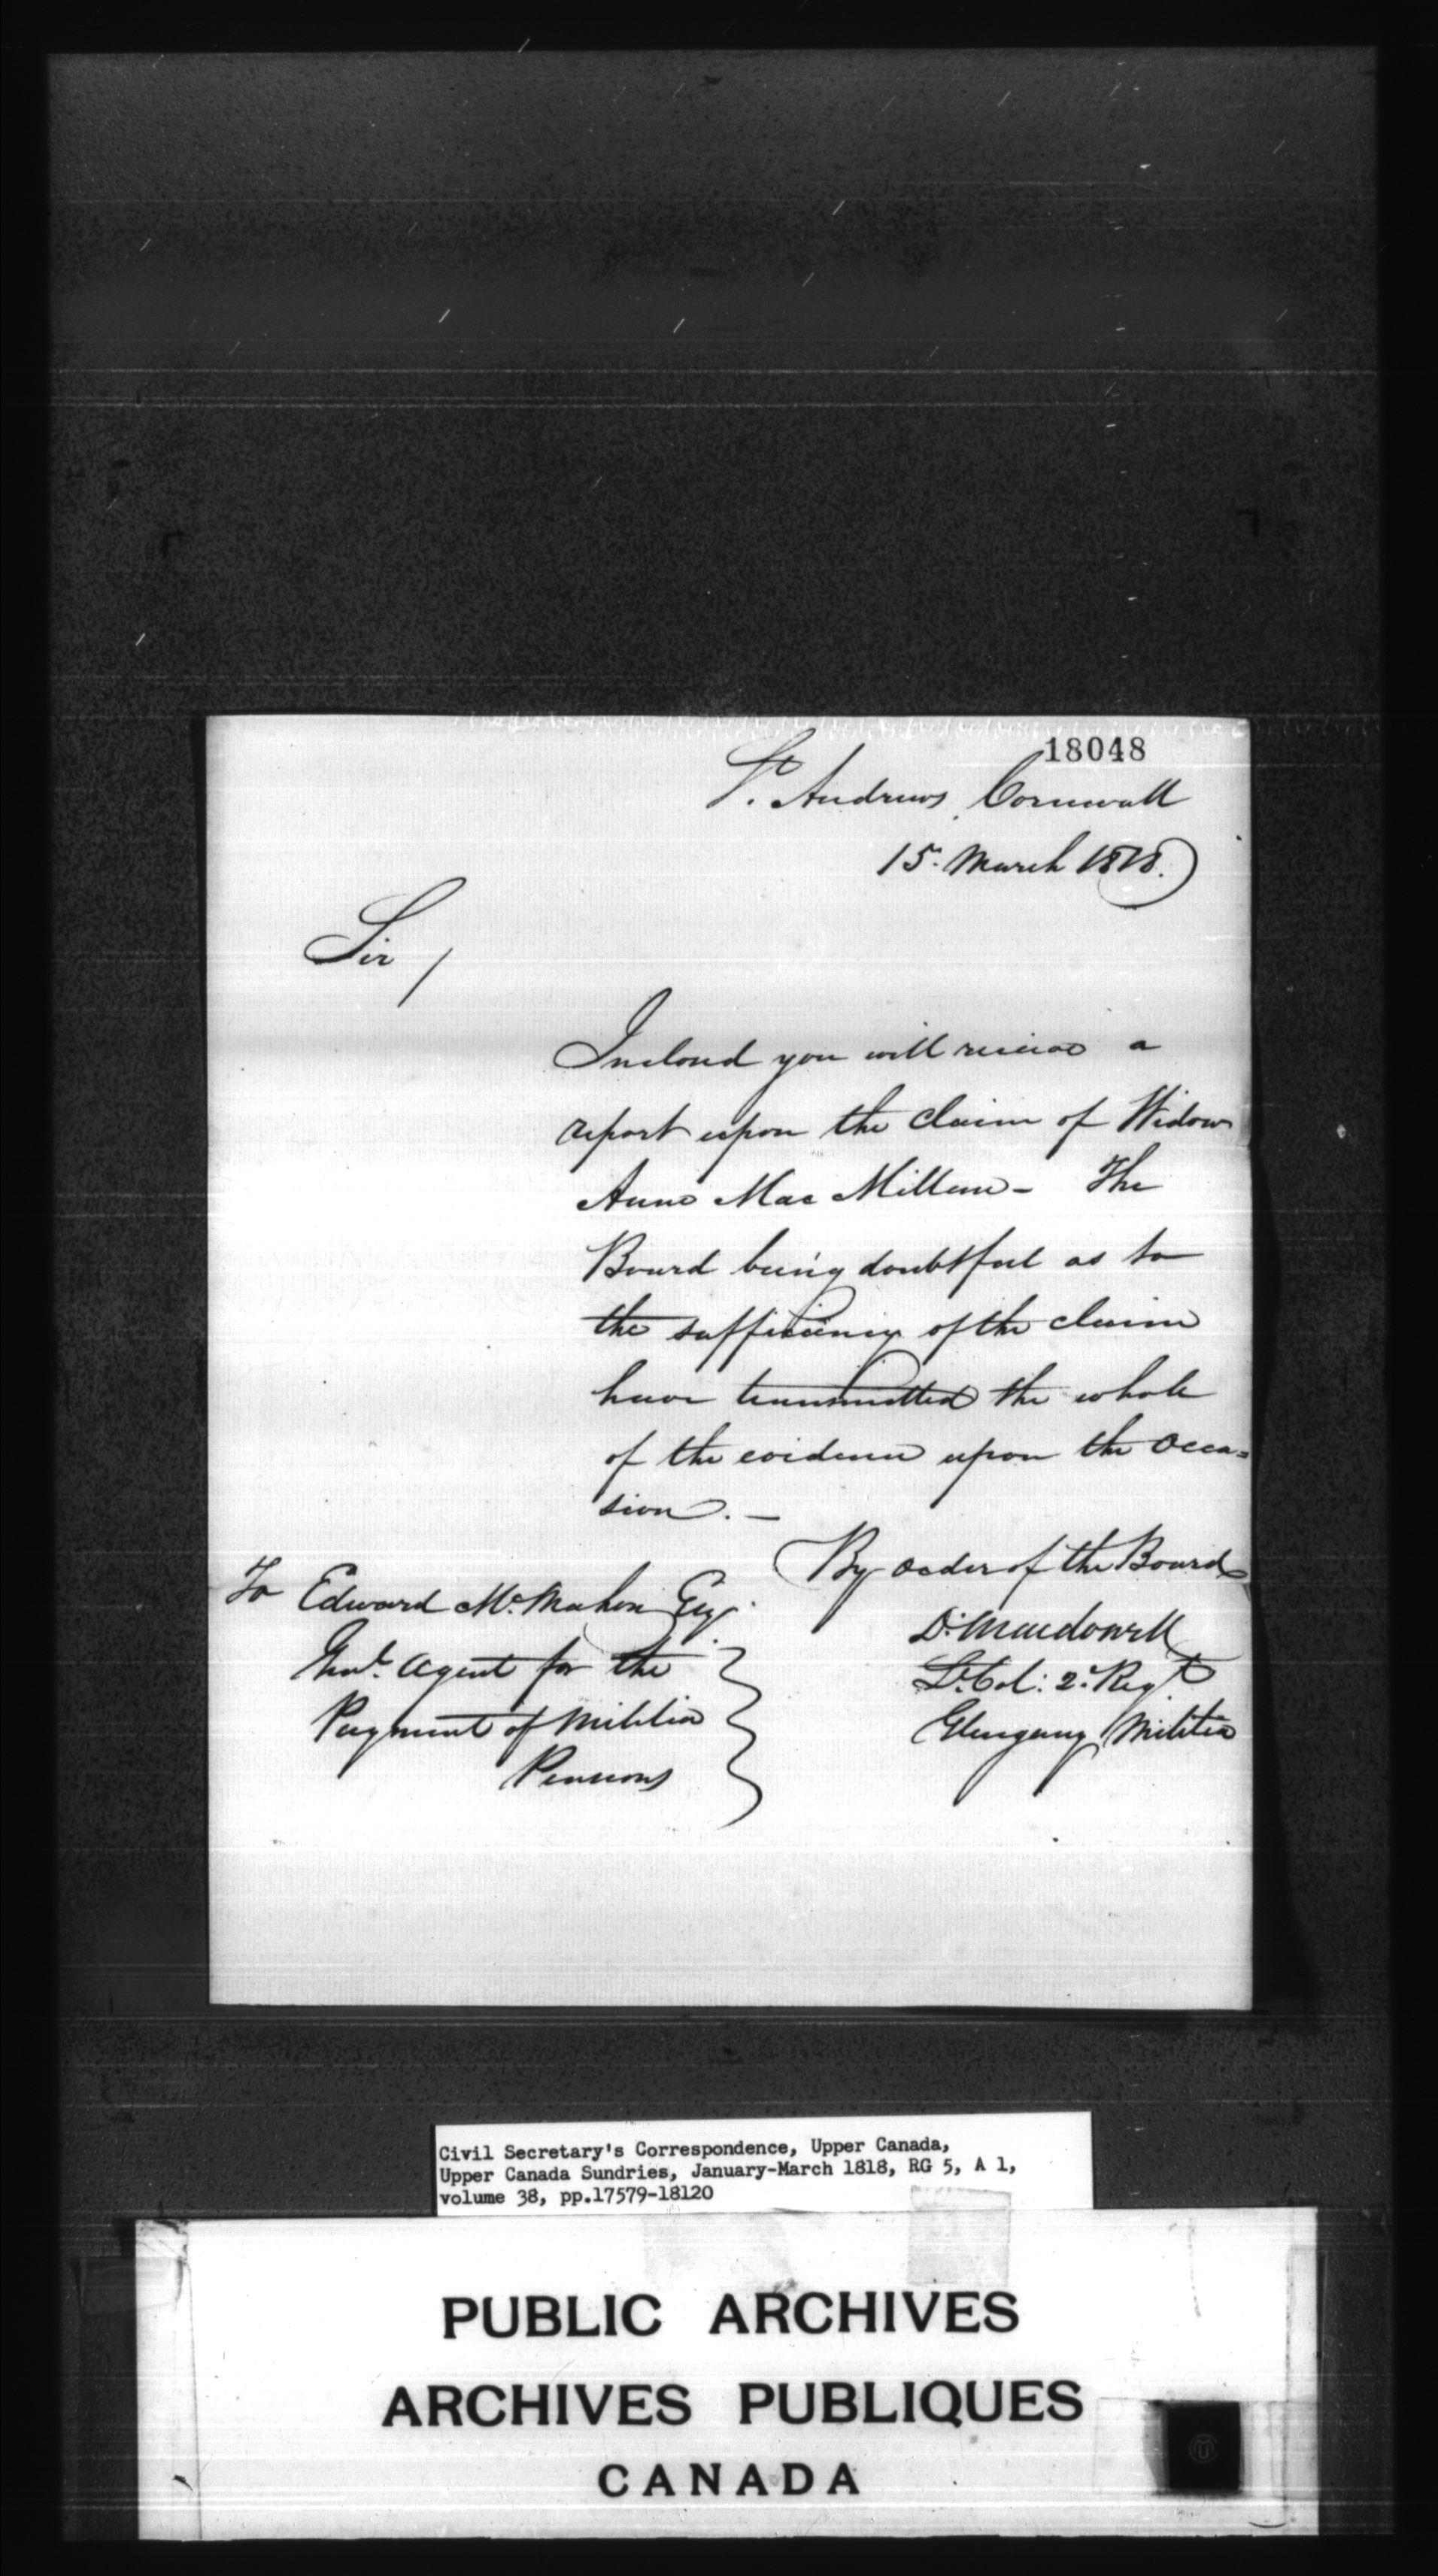 18048
St. Andrews, Cornwall
15. March 1818.
Sir /
Inclosed you will receive a
report upon the claim of Widow
Anne Mac Millan - The
Board being doubtful as to
the sufficiency of the claim
have transmitted the whole
of the evidence upon the Occa=
sion. -
By order of the Board
D. Macdonell
Lt. Col: 2d. Regt
Glengary Militia
To Edward McMahon Esqr.
Genl. Agent for the
Payment of Militia
Pensions
Civil Secretary's Correspondence, Upper Canada,
Upper Canada Sundries, January-March 1818, RG 5, A 1,
volume 38, pp.17579-18120
PUBLIC ARCHIVES
ARCHIVES PUBLIQUES
CANADA